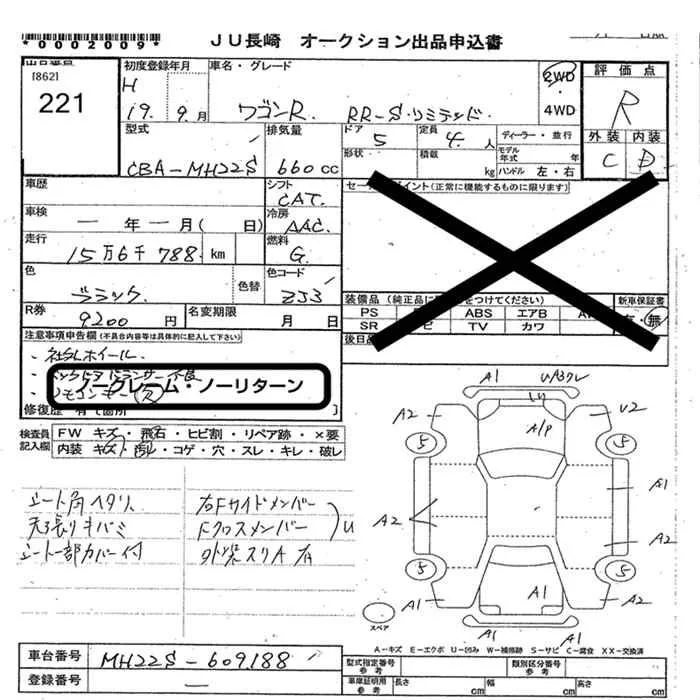 *0002009*
JU長崎 オークション出品申込書
[862]
221
初度登録年月
H
19年 9月
車名・グレード
ワゴンR. RR-S・リミテッド
2WD
4WD
評価点
R
外装 内装
C D
型式
CBA-MH22S
排気量
660cc
ドア
5
定員
4人
形状
積載
kg
ディーラー・並行
モデル年式 年
ハンドル 左・右
車歴
シフト
CAT.
車検
ー年ー月( 日)
冷房
AAC.
走行
15万6千788 km
燃料
G.
色
ブラック
色替
色コード
ZJ3
R券
9200円
名変期限
月 日
イント(正常に機能するものに限ります)
装備品(純正品に
をつけてください)
PS
ABS エアB
SR
TV カワ
新車保証書
無
後日
注意事項申告欄(不具合内容等は具体的に記入して下さい)
・社外ホイール
ノークレーム・ノーリターン
修復歴 有
検査員記入欄
FW キズ・飛石・ヒビ割・リペア跡・×要
内装 キズ・汚れ・コゲ・穴・スレ・キレ・破レ
シート角ヘタリ
天張りキバミ
シート一部カバー付
右Fサイドメンバー
Fクロスメンバー
U
外装スリA有
A1
A2
U2
A/P
5
5
A1
A2
A2
5
5
A1
A1
A1
A1
スペア
A-キズ E-エクボ U-凹み W-補修跡 S-サビ C-腐食 XX-交換済
車台番号
MH22S-609188
登録番号
型式指定番号
類別区分番号
車庫証明用参考
長さ cm 幅 cm 高さ cm